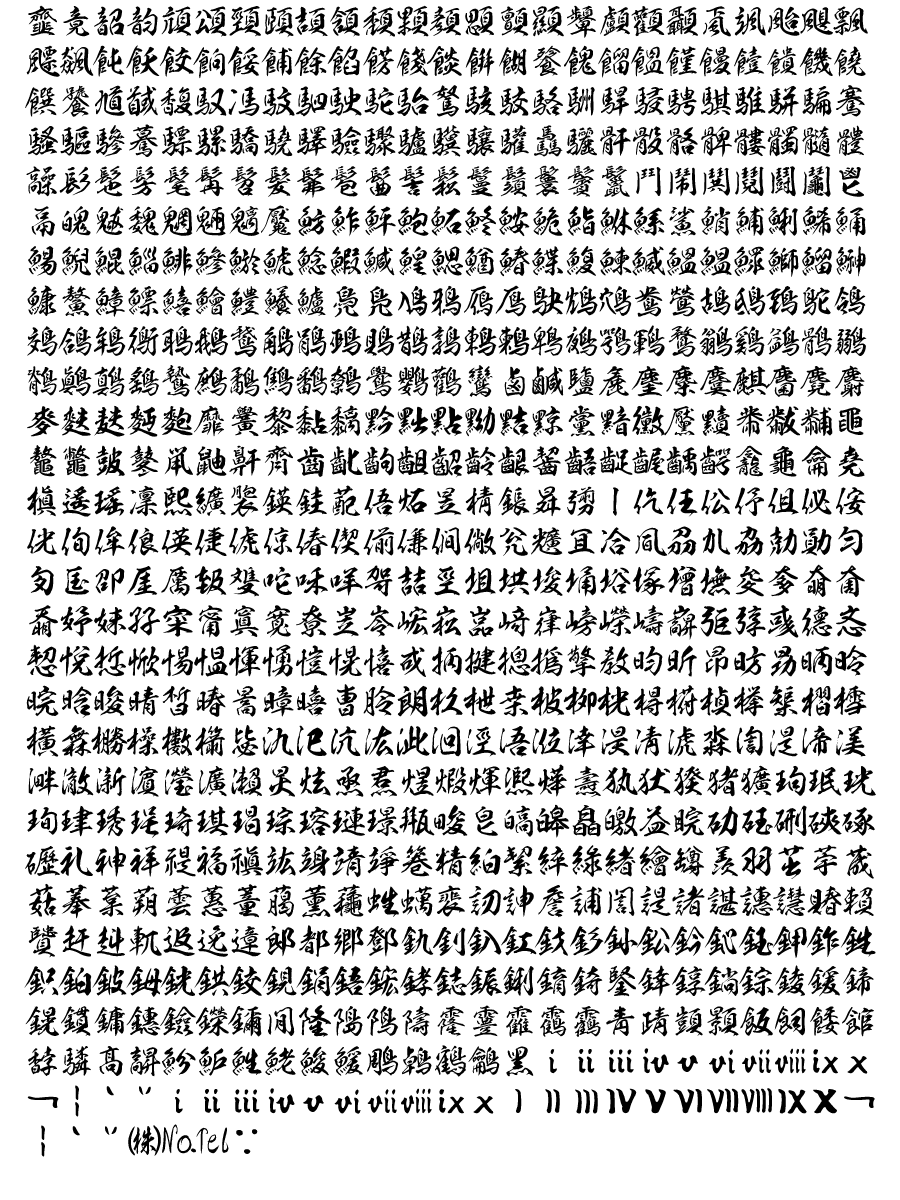 韲竟韶韵頏頌頸頤頡頷頽顆顏顋顫顯顰顱顴顳颪颯颱颶飄
飃飆飩飫餃餉餒餔餘餡餝餞餤餠餬餮餽餾饂饉饅饐饋饑饒
饌饕馗馘馥馭馮馼駟駛駝駘駑駭駮駱駲駻駸騁騏騅駢騙騫
騷驅驂驀驃騾驕驍驛驗驟驢驥驤驩驫驪骭骰骼髀髏髑髓體
髞髟髢髣髦髯髫髮髴髱髷髻鬆鬘鬚鬟鬢鬣鬥鬧鬨鬩鬪鬮鬯
鬲魄魃魏魍魎魑魘魴鮓鮃鮑鮖鮗鮟鮠鮨鮴鯀鯊鮹鯆鯏鯑鯒
鯣鯢鯤鯔鯡鰺鯲鯱鯰鰕鰔鰉鰓鰌鰆鰈鰒鰊鰄鰮鰛鰥鰤鰡鰰
鱇鰲鱆鰾鱚鱠鱧鱶鱸鳧鳬鳰鴉鴈鳫鴃鴆鴪鴦鶯鴣鴟鵄鴕鴒
鵁鴿鴾鵆鵈鵝鵞鵤鵑鵐鵙鵲鶉鶇鶫鵯鵺鶚鶤鶩鶲鷄鷁鶻鶸
鶺鷆鷏鷂鷙鷓鷸鷦鷭鷯鷽鸚鸛鸞鹵鹹鹽麁麈麋麌麒麕麑麝
麥麩麸麪麭靡黌黎黏黐黔黜點黝黠黥黨黯黴黶黷黹黻黼黽
鼇鼈皷鼕鼡鼬鼾齊齒齔齣齟齠齡齦齧齬齪齷齲齶龕龜龠堯
槇遙瑤凜熙纊褜鍈銈蓜俉炻昱棈鋹曻彅丨仡仼伀伃伹佖侒
侊侚侔俍偀倢俿倞偆偰偂傔僴僘兊兤冝冾凬刕劜劦勀勛匀
匇匤卲厓厲叝﨎咜咊咩哿喆坙坥垬埈埇﨏塚增墲夋奓奛奝
奣妤妺孖寀甯寘寬尞岦岺峵崧嵓﨑嵂嵭嶸嶹巐弡弴彧德忞
恝悅悊惞惕愠惲愑愷愰憘戓抦揵摠撝擎敎昀昕昻昉昮昞昤
晥晗晙晴晳暙暠暲暿曺朎朗杦枻桒柀栁桄棏﨓楨﨔榘槢樰
橫橆橳橾櫢櫤毖氿汜沆汯泚洄涇浯涖涬淏淸淲淼渹湜渧渼
溿澈澵濵瀅瀇瀨炅炫焏焄煜煆煇凞燁燾犱犾猤猪獷玽珉珖
珣珒琇珵琦琪琩琮瑢璉璟甁畯皂皜皞皛皦益睆劯砡硎硤硺
礰礼神祥禔福禛竑竧靖竫箞精絈絜綷綠緖繒罇羡羽茁荢荿
菇菶葈蒴蕓蕙蕫﨟薰蘒﨡蠇裵訒訷詹誧誾諟諸諶譓譿賰賴
贒赶﨣軏﨤逸遧郞都鄕鄧釚釗釞釭釮釤釥鈆鈐鈊鈺鉀鈼鉎
鉙鉑鈹鉧銧鉷鉸鋧鋗鋙鋐﨧鋕鋠鋓錥錡鋻﨨錞鋿錝錂鍰鍗
鎤鏆鏞鏸鐱鑅鑈閒隆﨩隝隯霳霻靃靍靏靑靕顗顥飯飼餧館
馞驎髙髜魵魲鮏鮱鮻鰀鵰鵫鶴鸙黑ⅰⅱⅲⅳⅴⅵⅶⅷⅸⅹ
¬￤＇＂ⅰⅱⅲⅳⅴⅵⅶⅷⅸⅹⅠⅡⅢⅣⅤⅥⅦⅧⅨⅩ¬
￤＇＂㈱№℡∵